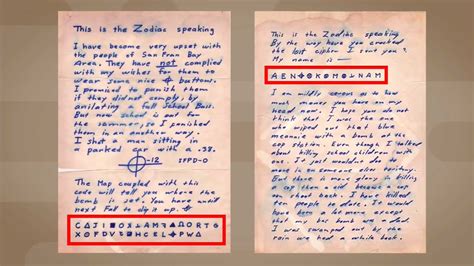 This is the Zodiac speaking
I have become very upset with
the people of San Fran Bay
Area. They have not complied
with my wishes for them to
wear some nice ⌖ buttons.
I promiced to punish them
if they did not comply, by
anilating a full School Buss.
But now school is out for
the summer, so I punished
them in an another way.
I shot a man sitting in
a parked car with a .38.
⌖-12 SFPD-0
The Map coupled with this
code will tell you where the
bomb is set. You have untill
next Fall to dig it up. ⌖
This is the Zodiac speaking
By the way have you cracked
the last cipher I sent you ?
My name is —
I am mildly cerous as to how
much money you have on my
head now. I hope you do not
think that I was the one
who wiped out that blue
meannie with a bomb at the
cop station. Even though I talked
about killing school children with
one. It just wouldnt doo to
move in on someone elses teritory.
But there is more glory in killing
a cop than a cid because a cop
can shoot back. I have killed
ten people to date. It would
have been a lot more except
that my bus bomb was a dud.
I was swamped out by the
rain we had a while back.